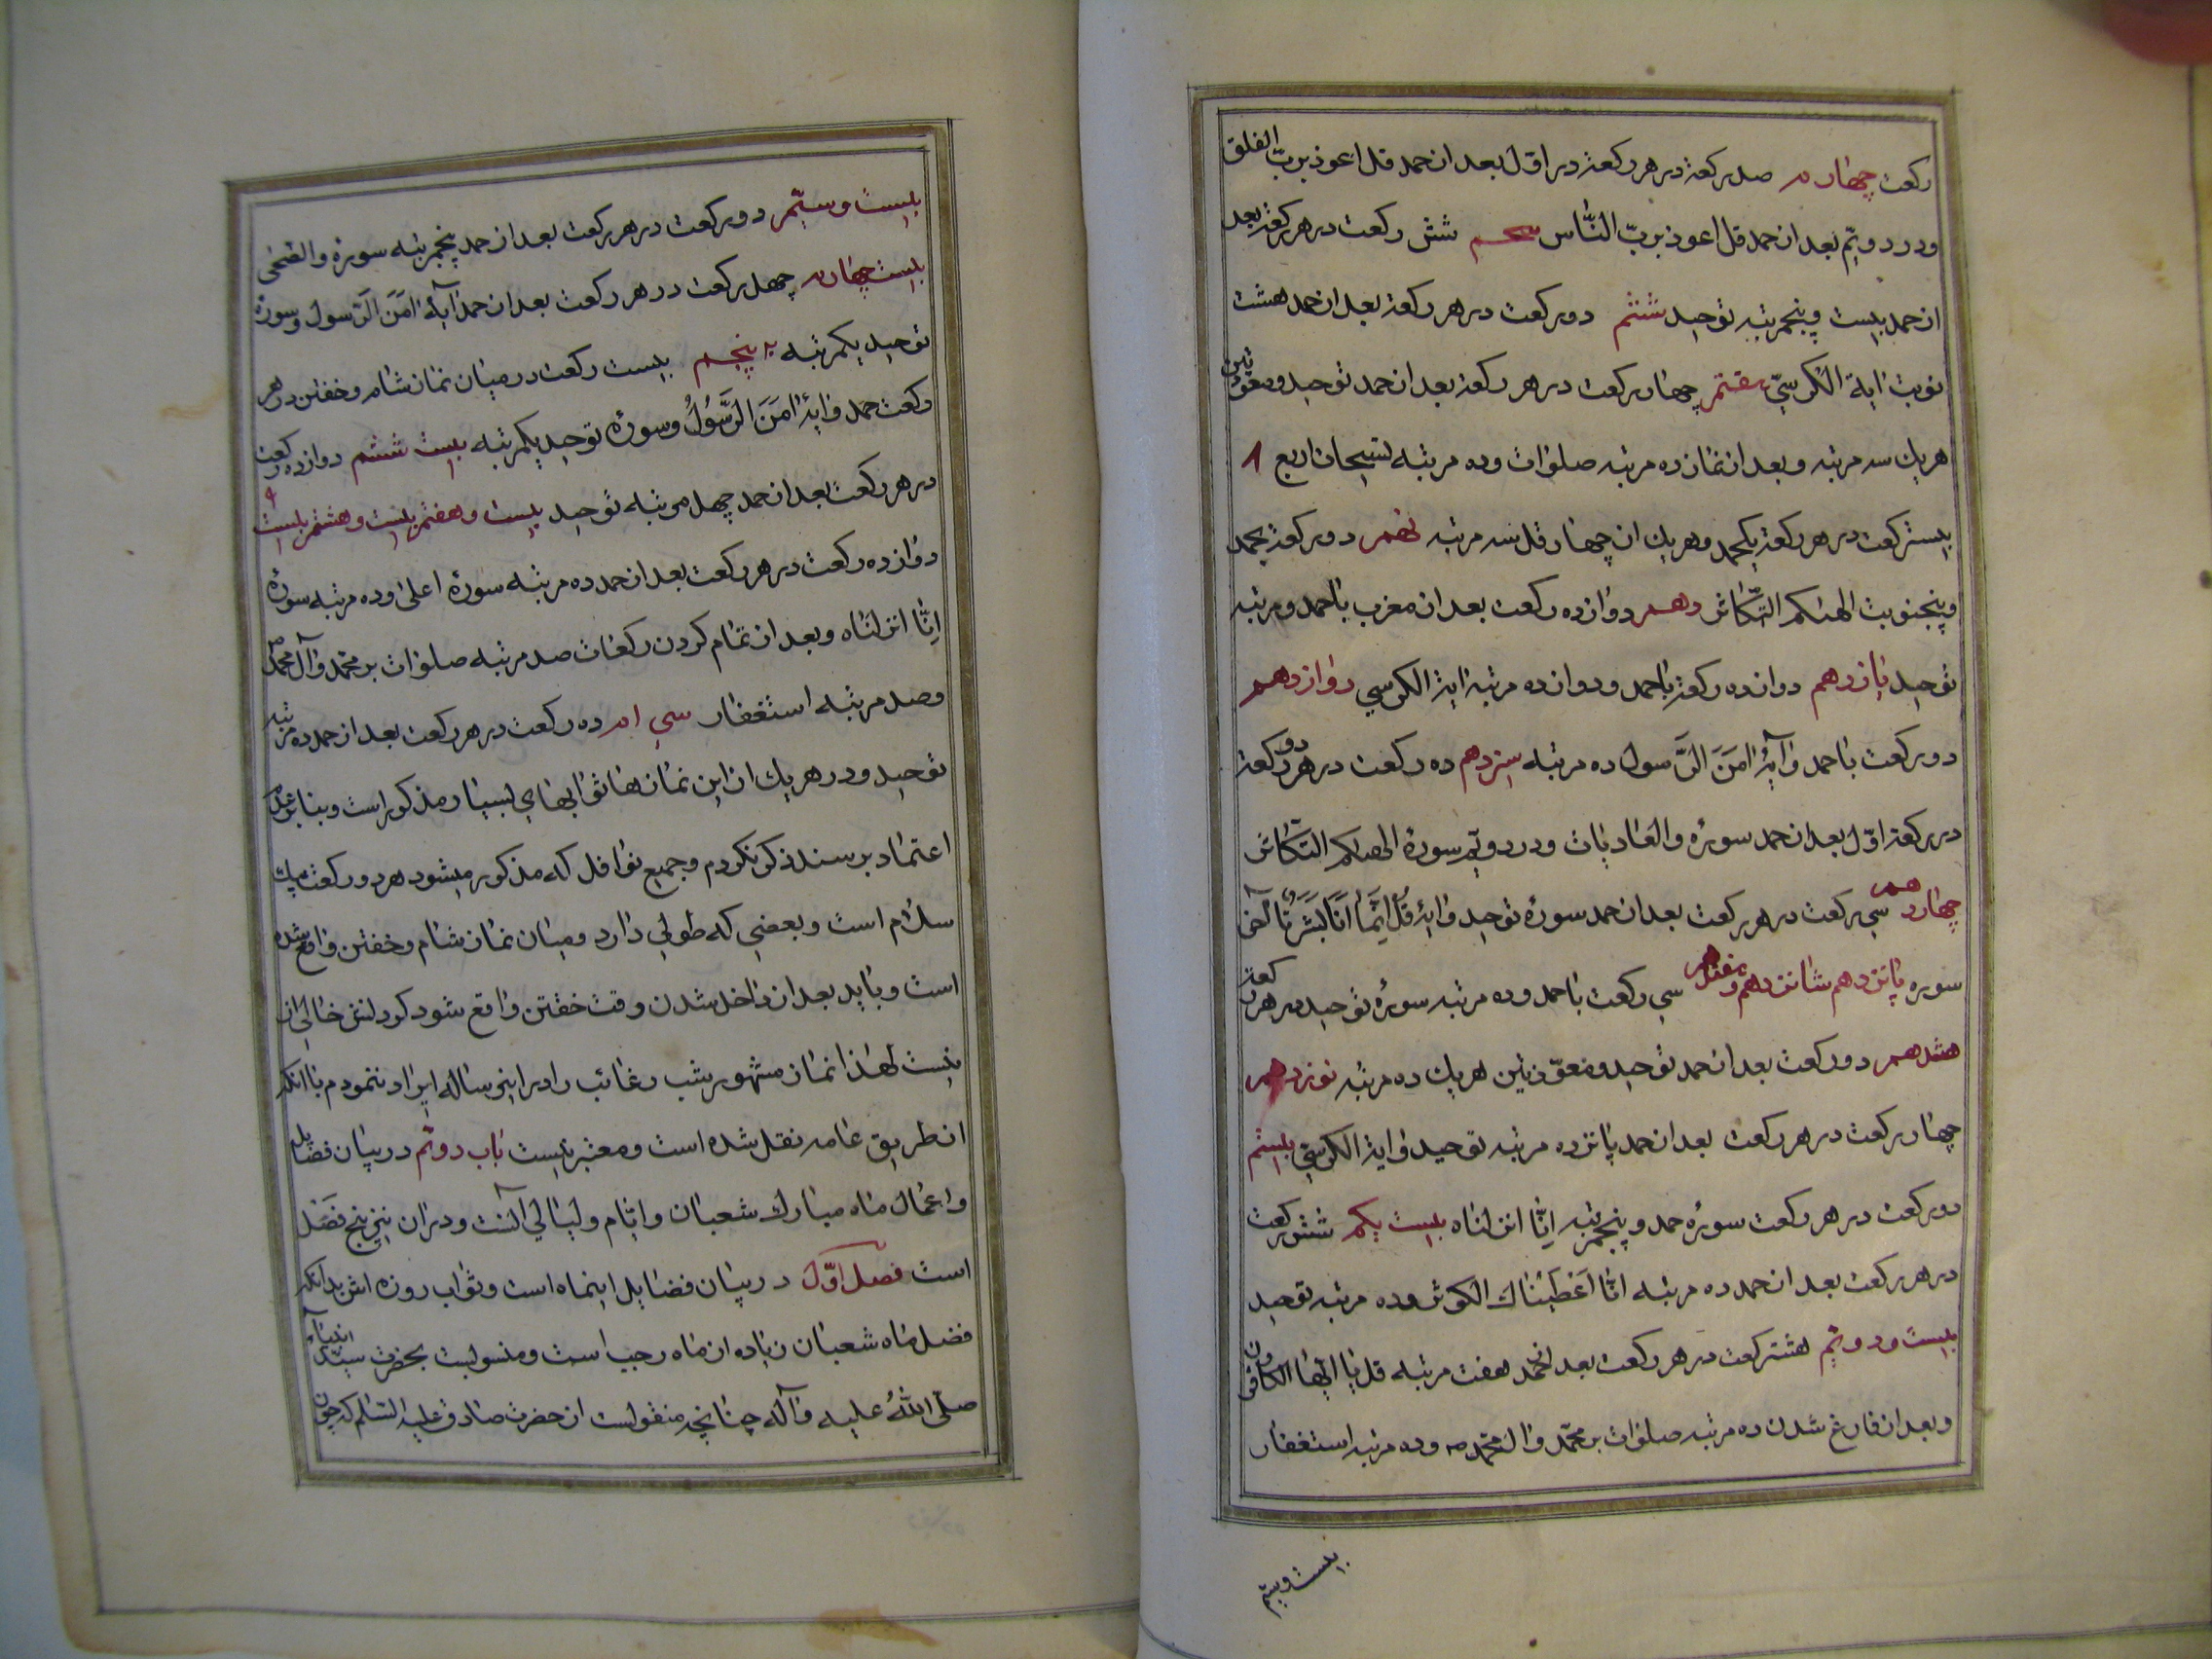 ركعت چهارم صد ركعة در هر ركعة در اوّل بعد از حمد قل اعوذ بربّ الفلق
و در دويّم بعد از حمد قل اعوذ بربّ النّاس پنجم شش ركعت در هر ركعة بعد
از حمد بيست و پنجمرتبه توحيد ششم دو ركعت در هر ركعة بعد از حمد هشت
نوبت اية الكرسيّ هفتم چهار ركعت در هر ركعة بعد از حمد توحيد و معوّذتين
هر يك سه مرتبه و بعد از نماز ده مرتبه صلوات و ده مرتبه تسبيحات اربع ٨
بيست ركعت در هر ركعة يكحمد و هر يك از چهار قل سه مرتبه نهم دو ركعة بحمد
و پنجنوبت الهيكم التّكاثر دهم دوازده ركعت بعد از مغرب با حمد و مرتبه
توحيد يازدهم دوازده ركعة با حمد و دوازده مرتبه اية الكرسي دوازدهم
دو ركعت با حمد و آية امَنَ الرَّسول ده مرتبه سيزدهم ده ركعت در هر دو ركعة
در ركعة اوّل بعد از حمد سورۀ والعاديات و در دويّم سورۀ الهيكم التّكاثر
چهاردهم سي ركعت در هر ركعت بعد از حمد سورۀ توحيد و اية قُل اِنَّما اَنَا بَشَرٌ تا آخر
سوره پانزدهم شانزدهم و هفدهم سي ركعت با حمد و ده مرتبه سورۀ توحيد در هر ركعة
هشدهم دو ركعت بعد از حمد توحيد و معوّذتين هر يك ده مرتبه نوزدهم
چهار ركعت در هر ركعت بعد از حمد پانزده مرتبه توحيد و اية الكرسيّ بيستم
دو ركعت در هر ركعت سورۀ حمد و پنجمرتبه اِنّا انزلناه بيست يكم شش ركعت
در هر ركعت بعد از حمد ده مرتبه انّا اَعْطَيْناك الكوثر و ده مرتبه توحيد
بيست و دويّم هشت ركعت در هر ركعت بعد از حمد هفت مرتبه قل يا ايّها الكافرون
و بعد از فارغ شدن ده مرتبه صلوات بر محمّد و ال محمّد ص و ده مرتبه استغفار
بيست و سيّم
بيست و سيّم دو ركعت در هر ركعت بعد از حمد پنجمرتبه سورۀ والضّحى
بيست چهارم چهل ركعت در هر ركعت بعد از حمد آيۀ امَنَ الرَّسول و سورۀ
توحيد يكمرتبه ب پنجم بيست ركعت در ميان نماز شام و خفتن در هر
ركعت حمد و ايۀ امَنَ الرَّسُولُ و سورۀ توحيد يكمرتبه بيست ششم دوازده ركعت
در هر ركعت بعد از حمد چهل مرتبه توحيد بيست و هفتم بيست و هشتم بيست ٩
دوازده ركعت در هر ركعت بعد از حمد ده مرتبه سورۀ اعلى و ده مرتبه سورۀ
اِنّا انزلناه و بعد از تمام كردن ركعات صد مرتبه صلوات بر محمّد و آل محمّد ص
و صد مرتبه استغفار سي ام ده ركعت در هر ركعت بعد از حمد ده مرتبه
توحيد و در هر يك از اين نمازها ثوابهاي بسيار مذكور است و بنابر عدم
اعتماد بر سند ذكر نكردم و جميع نوافل كه مذكور ميشود هر دو ركعت بيك
سلام است و بعضي كه طولي دارد و ميان نماز شام و خفتن واقع شده
است و بايد بعد از داخل شدن وقت خفتن واقع شود كردنش خالي از
نيست لهذا نماز مشهور شب رغائب را در اينرساله ايراد ننمودم با انكه
از طريق عامه نقل شده است و معتبر نيست باب دويّم در بيان فضايل
و اعمال ماه مبارك شعبان و ايّام و ليالي آنست و در ان نيز پنج فصل
است فصل اوّل در بيان فضايل اينماه است و ثواب روزه اش بدانكه
فضل ماه شعبان زياده از ماه رجب است و منسوبست بحضرت سيّد انبياء
صلّى اللّهُ عليه و آله چنانچه منقولست از حضرت صادق عليه السّلام كه چون